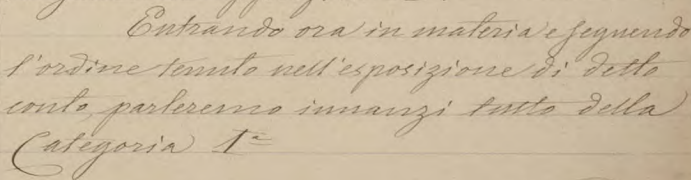 Entrando ora in materia e seguendo
l'ordine tenuto nell'esposizione di detto
conto, parleremo innanzi tutto della
Categoria 1ª